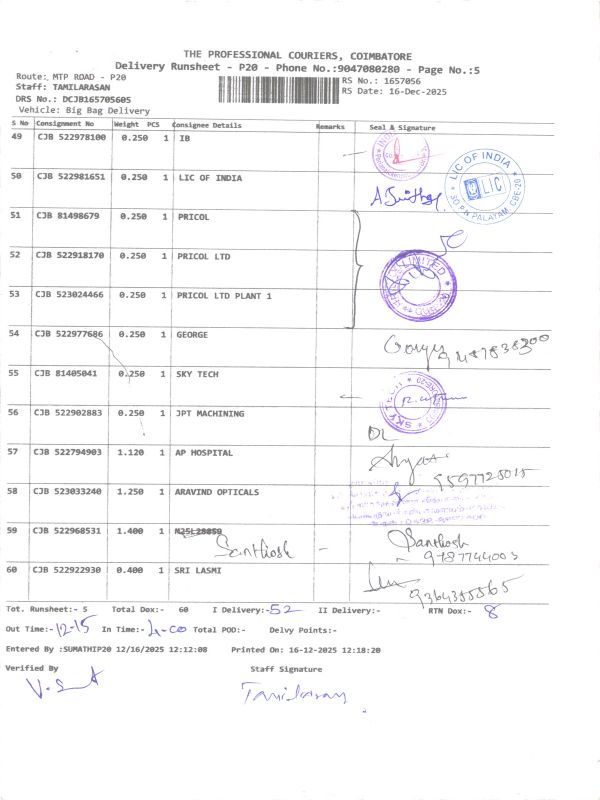 THE PROFESSIONAL COURIERS, COIMBATORE
Delivery Runsheet - P20 - Phone No.:9047080280 - Page No.:5
Route: MTP ROAD - P20 RS No.: 1657056
Staff: TAMILARASAN RS Date: 16-Dec-2025
DRS No.: DCJB165705605
Vehicle: Big Bag Delivery
S No Consignment No Weight PCS Consignee Details Remarks Seal & Signature
49 CJB 522978100 0.250 1 IB
50 CJB 522981651 0.250 1 LIC OF INDIA
LIC OF INDIA
LIC
P.N PALAYAM CBE-20
51 CJB 81498679 0.250 1 PRICOL
52 CJB 522918170 0.250 1 PRICOL LTD
LIMITED
53 CJB 523024466 0.250 1 PRICOL LTD PLANT 1
54 CJB 522977686 0.250 1 GEORGE
55 CJB 81405041 0.250 1 SKY TECH
SKY TECH
56 CJB 522902883 0.250 1 JPT MACHINING
DL
57 CJB 522794903 1.120 1 AP HOSPITAL
58 CJB 523033240 1.250 1 ARAVIND OPTICALS
59 CJB 522968531 1.400 1 Santhosh
Santhosh
9787744003
60 CJB 522922930 0.400 1 SRI LASMI
9364355565
Tot. Runsheet:- 5 Total Dox:- 60 I Delivery:-52 II Delivery:- RTN Dox:- 8
Out Time:-12-15 In Time:-4-00 Total POD:- Delvy Points:-
Entered By :SUMATHIP20 12/16/2025 12:12:08 Printed On: 16-12-2025 12:18:20
Verified By Staff Signature
Tamilarasan